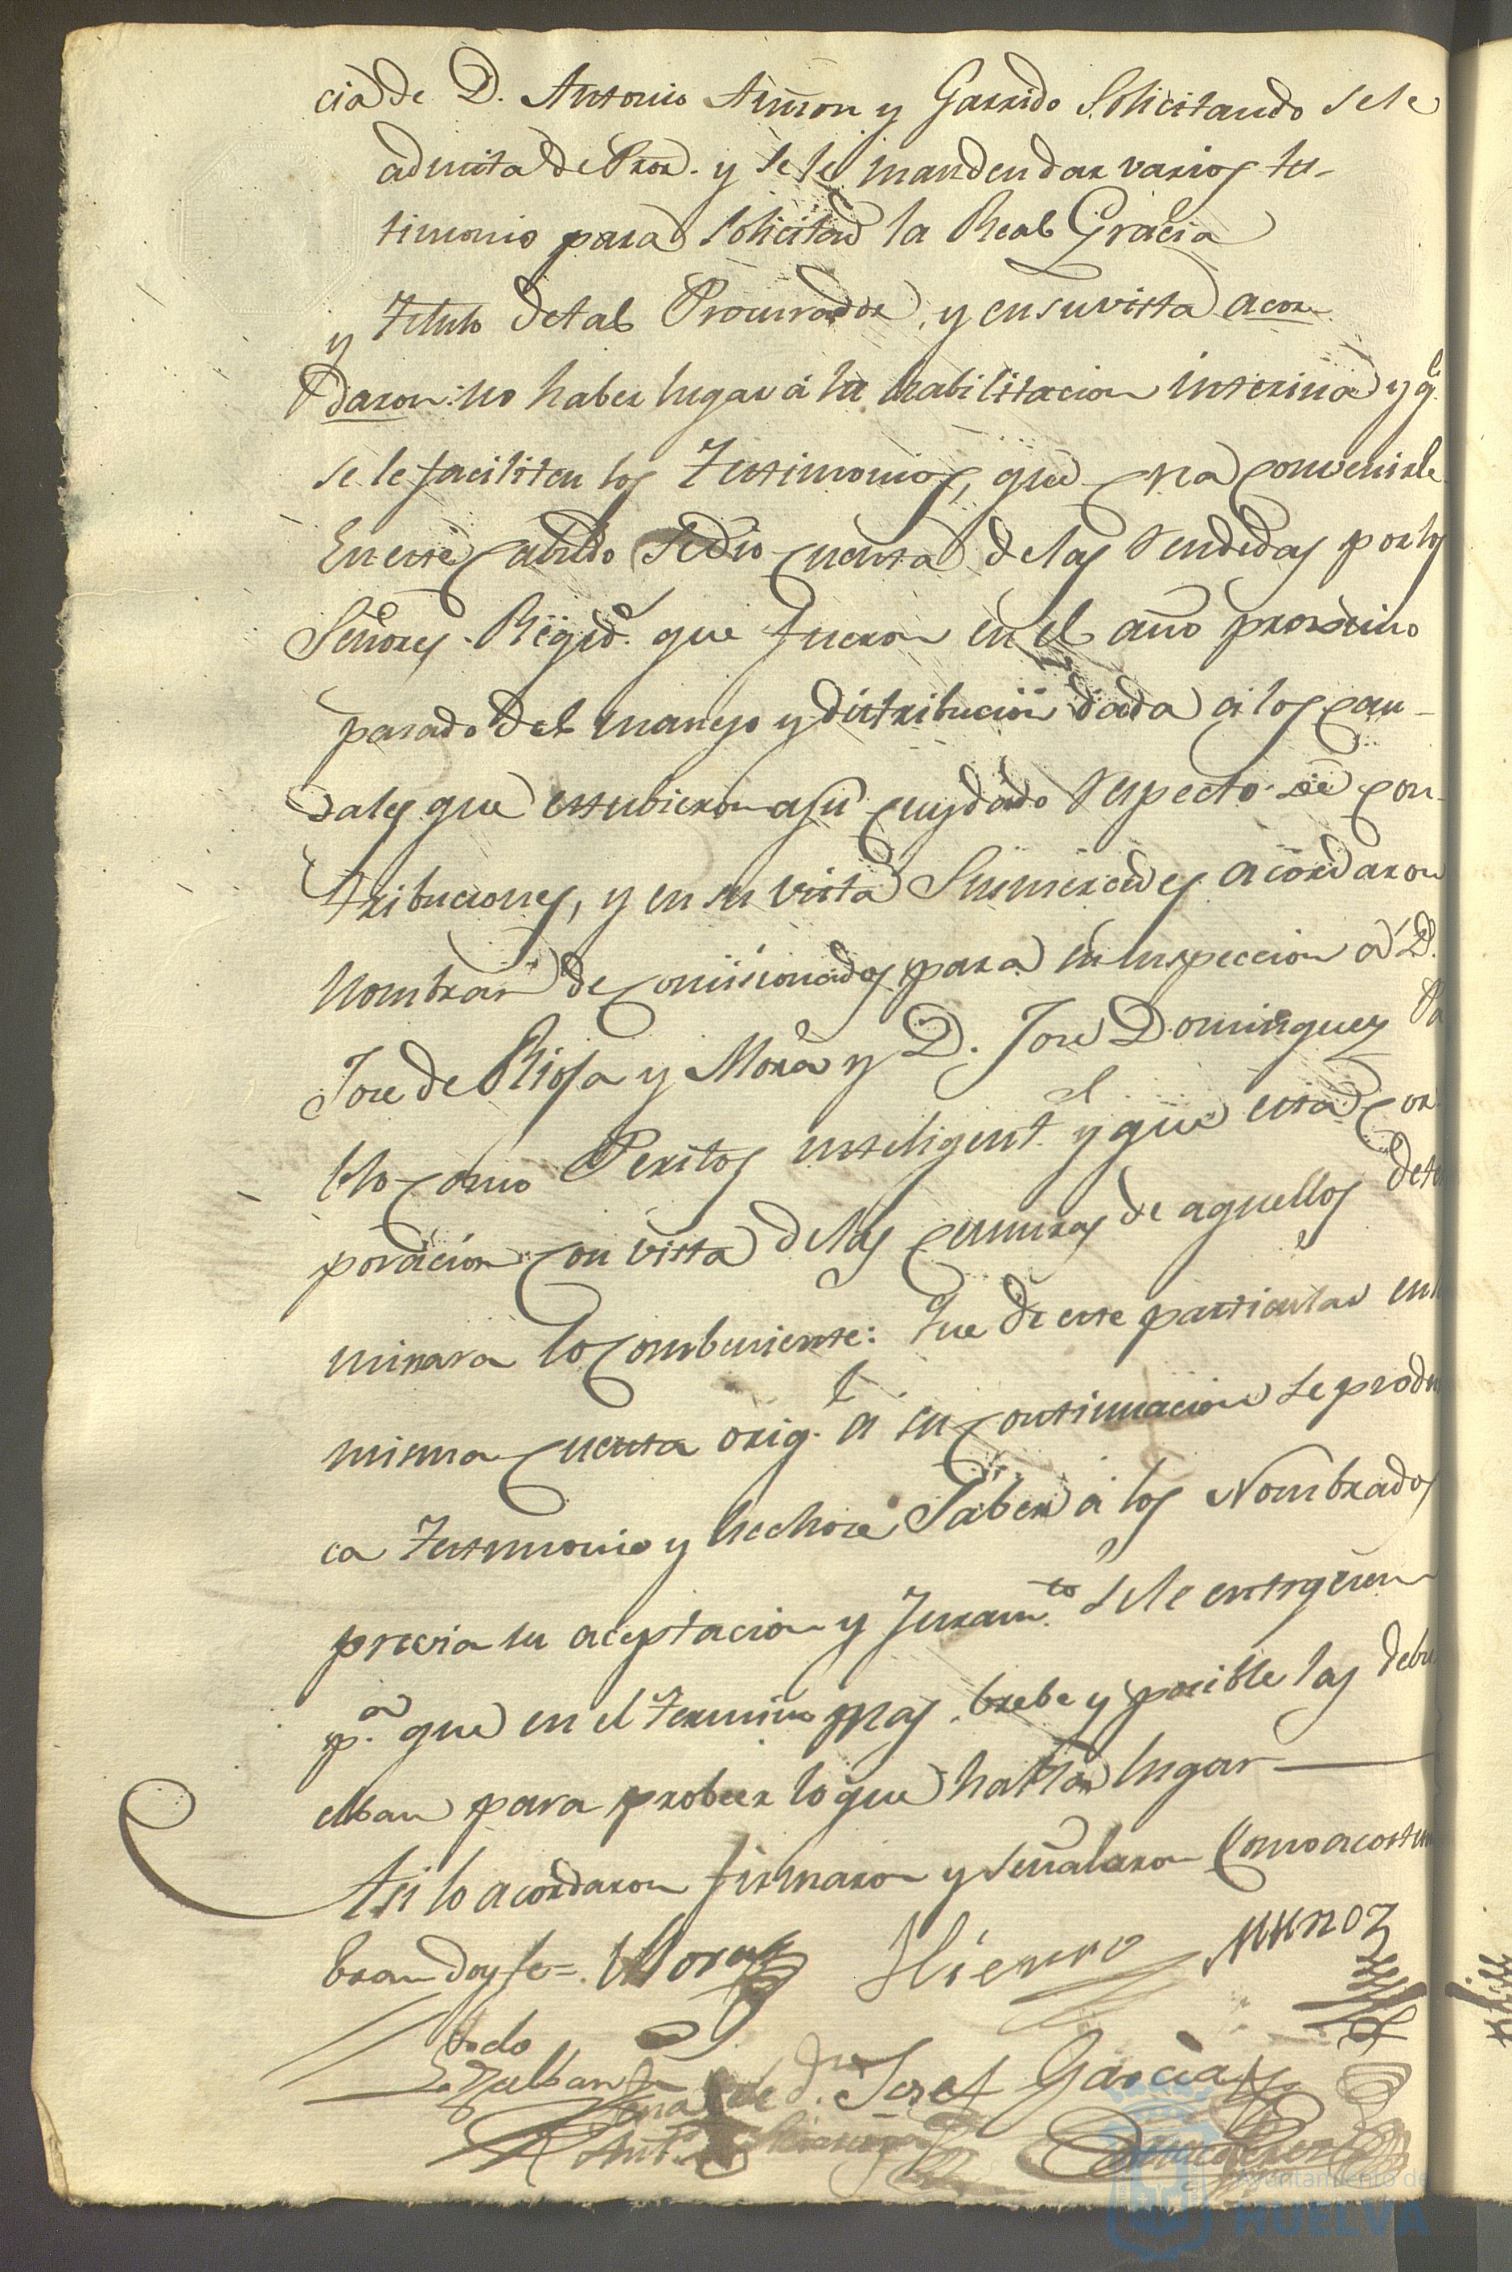 cia de D. Antonio Armon y Garrido Solicitando sele
admita de Pror. y se le manden dar varios tes-
timonio para Solicitar la Real Gracia
y Titulo de tal Procurador, y en su vista acor
daron: no haber lugar á la habilitacion interina y q.e
se le faciliten los Testimonios, que crea convenirle
En este Cabildo se dio cuenta de las rendidas por los
Señores Regid.s que fueron en el año proximo
pasado del manejo y distribucion dada á los cau-
dales que estubieron a su cuydado respecto de con-
tribuciones, y en su vista Sus mercedes acordaron
Nombrar de comisionados para su inspeccion á D.
Jose de Rioja y Mora y D. Jose Dominguez Pa
blo como Peritos inteligent.s y que esta cor
poracion con vista de las censuras de aquellos deter
minara lo combeniente: Que de este particular en la
misma cuenta orig.l á su continuacion se produz
ca Testimonio y hechose Saber á los Nombrados
previa su aceptacion y Juram.to se le entreguen
p.a que en el termino mas brebe y posible las debu
elban para probeer lo que halla lugar
Asi lo acordaron firmaron y señalaron como acostum
bran doy fe =. Mora Hierro Muñoz
Señal de d.n Josef Garcia
Ant.o
Ayuntamiento de
HUELVA